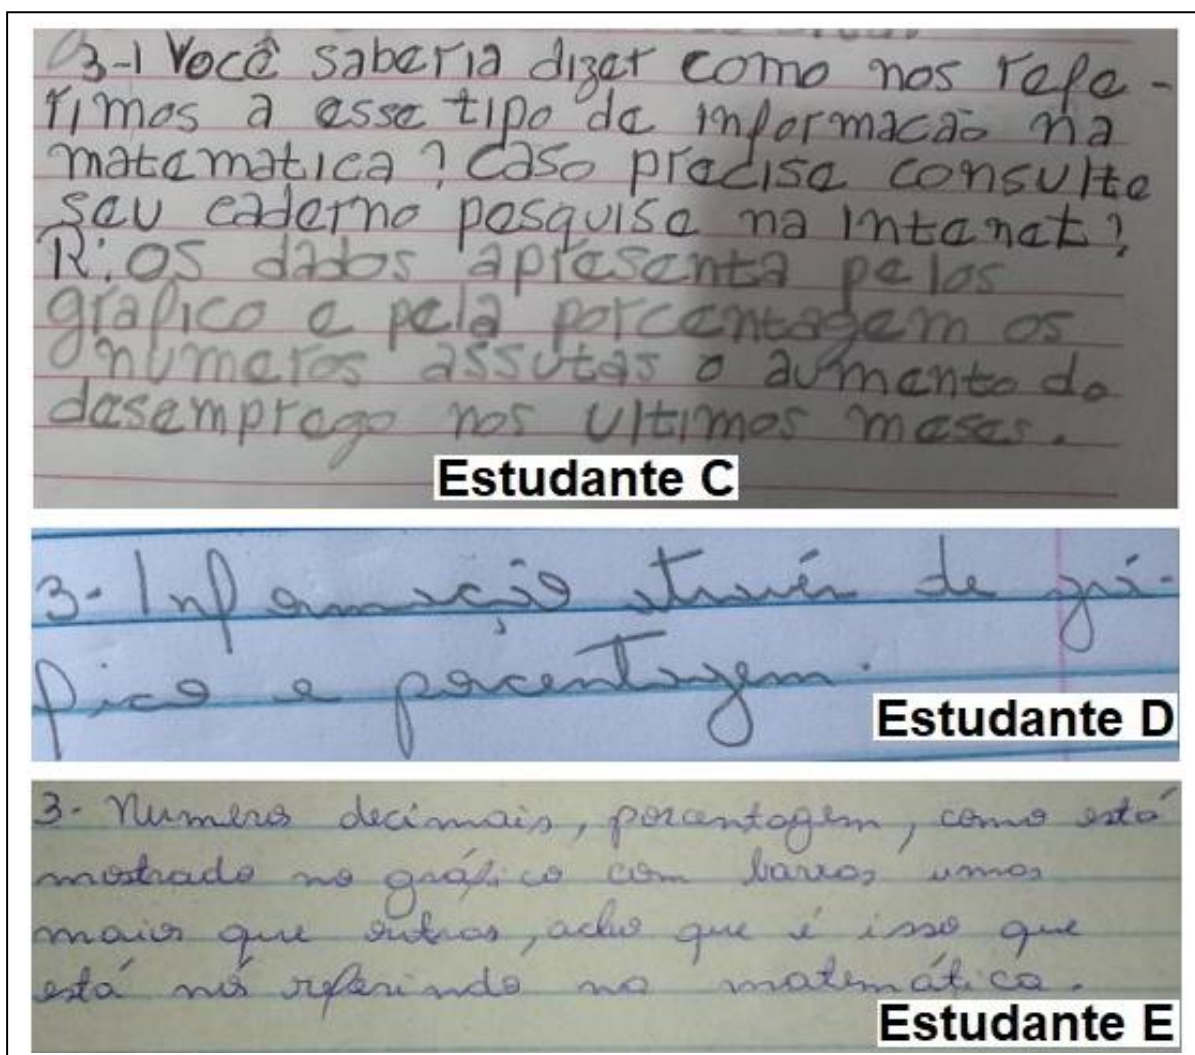 3-1 Você saberia dizer como nos refe-
rimos a esse tipo de informacão na
matematica? Caso precise consulte
seu caderno pesquise na intenet?
R: os dados apresenta pelos
grafico e pela porcentagem os
numeros assutas o aumento do
desemprego nos ultimos meses.
Estudante C
3- Informação através de grá-
fico e porcentagem.
Estudante D
3- Numeros decimais, porcentagem, como está
mostrado no gráfico com barras umas
maior que outras, acho que é isso que
está nós referindo na matemática.
Estudante E